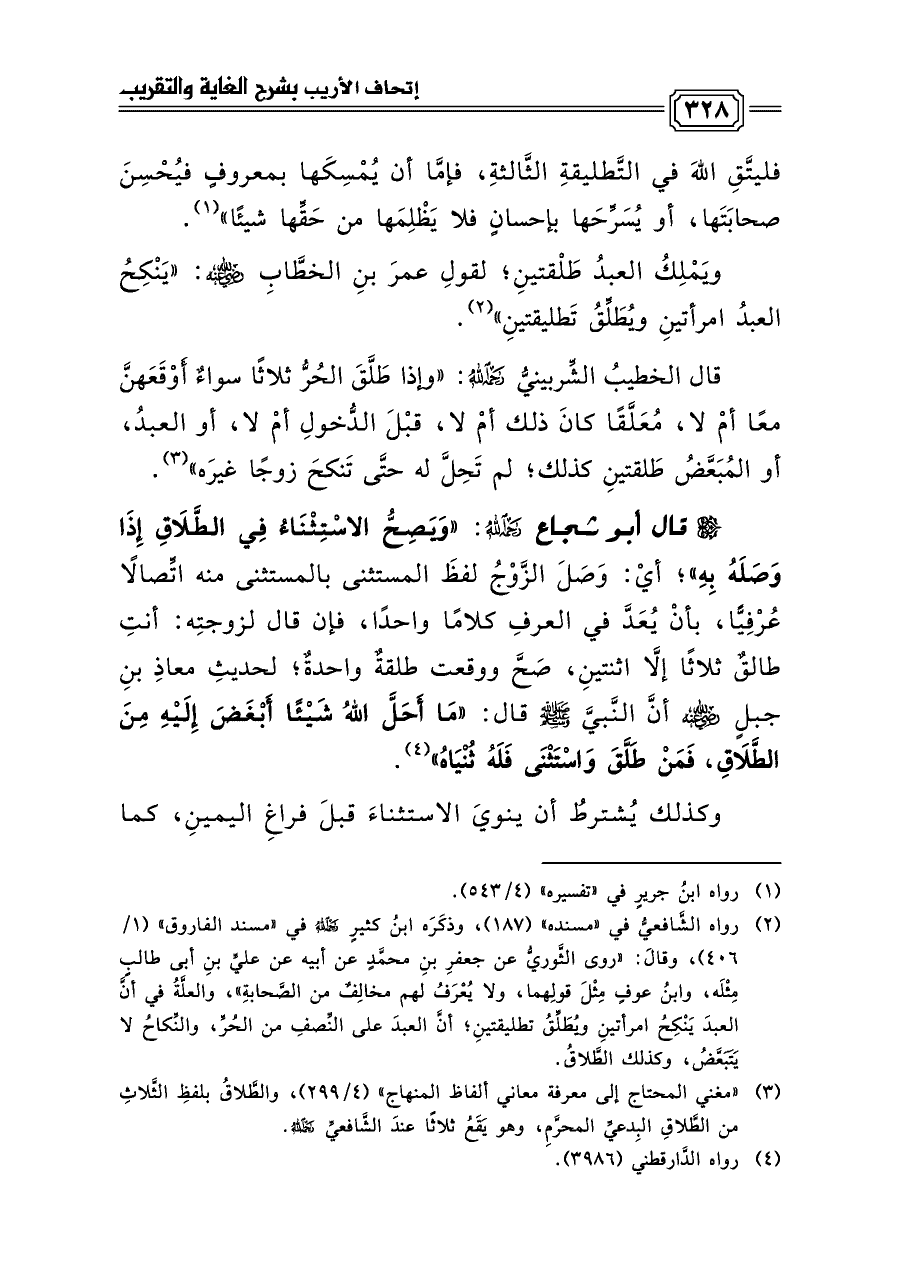 إتحاف الأريب بشرح الغاية والتقريب
٣٢٨
فليتَّقِ اللهَ في التَّطليقةِ الثَّالثةِ، فإمَّا أن يُمْسِكَها بمعروفٍ فيُحْسِنَ
صحابَتَها، أو يُسَرِّحَها بإحسانٍ فلا يَظْلِمَها من حَقِّها شيئًا»(١).
ويَمْلِكُ العبدُ طَلْقتينِ؛ لقولِ عمرَ بنِ الخطَّابِ ﵁: «يَنْكِحُ
العبدُ امرأتينِ ويُطَلِّقُ تَطليقتينِ»(٢).
قال الخطيبُ الشِّربينيُّ ﵀: «وإذا طَلَّقَ الحُرُّ ثلاثًا سواءٌ أَوْقَعَهنَّ
معًا أمْ لا، مُعَلَّقًا كانَ ذلك أمْ لا، قبْلَ الدُّخولِ أمْ لا، أو العبدُ،
أو المُبَعَّضُ طَلقتينِ كذلك؛ لم تَحِلَّ له حتَّى تَنكحَ زوجًا غيرَه»(٣).
قال أبو شجاع ﵀: «وَيَصِحُّ الاسْتِثْنَاءُ فِي الطَّلَاقِ إِذَا
وَصَلَهُ بِهِ»؛ أيْ: وَصَلَ الزَّوْجُ لفظَ المستثنى بالمستثنى منه اتِّصالًا
عُرْفِيًّا، بأنْ يُعَدَّ في العرفِ كلامًا واحدًا، فإن قال لزوجتِه: أنتِ
طالقٌ ثلاثًا إلَّا اثنتينِ، صَحَّ ووقعت طلقةٌ واحدةٌ؛ لحديثِ معاذِ بنِ
جبلٍ ﵁ أنَّ النَّبيَّ ﷺ قال: «مَا أَحَلَّ اللهُ شَيْئًا أَبْغَضَ إِلَيْهِ مِنَ
الطَّلَاقِ، فَمَنْ طَلَّقَ وَاسْتَثْنَى فَلَهُ ثُنْيَاهُ»(٤).
وكذلك يُشترطُ أن ينويَ الاستثناءَ قبلَ فراغِ اليمينِ، كما
(١) رواه ابنُ جريرٍ في «تفسيره» (٤/ ٥٤٣).
(٢) رواه الشَّافعيُّ في «مسنده» (١٨٧)، وذكَرَه ابنُ كثيرٍ ﵀ في «مسند الفاروق» (١/
٤٠٦)، وقالَ: «روى الثَّوريُّ عن جعفرِ بنِ محمَّدٍ عن أبيه عن عليِّ بنِ أبى طالبٍ
مِثْلَه، وابنُ عوفٍ مِثْلَ قولِهما، ولا يُعْرَفُ لهم مخالِفٌ من الصَّحابةِ»، والعلَّةُ في أنَّ
العبدَ يَنْكِحُ امرأتينِ ويُطَلِّقُ تطليقتينِ؛ أنَّ العبدَ على النِّصفِ من الحُرِّ، والنِّكاحُ لا
يَتَبَعَّضُ، وكذلك الطَّلاقُ.
(٣) «مغني المحتاج إلى معرفة معاني ألفاظ المنهاج» (٤/ ٢٩٩)، والطَّلاقُ بلفظِ الثَّلاثِ
من الطَّلاقِ البِدعيِّ المحرَّمِ، وهو يَقَعُ ثلاثًا عندَ الشَّافعيِّ ﵀.
(٤) رواه الدَّارقطني (٣٩٨٦).